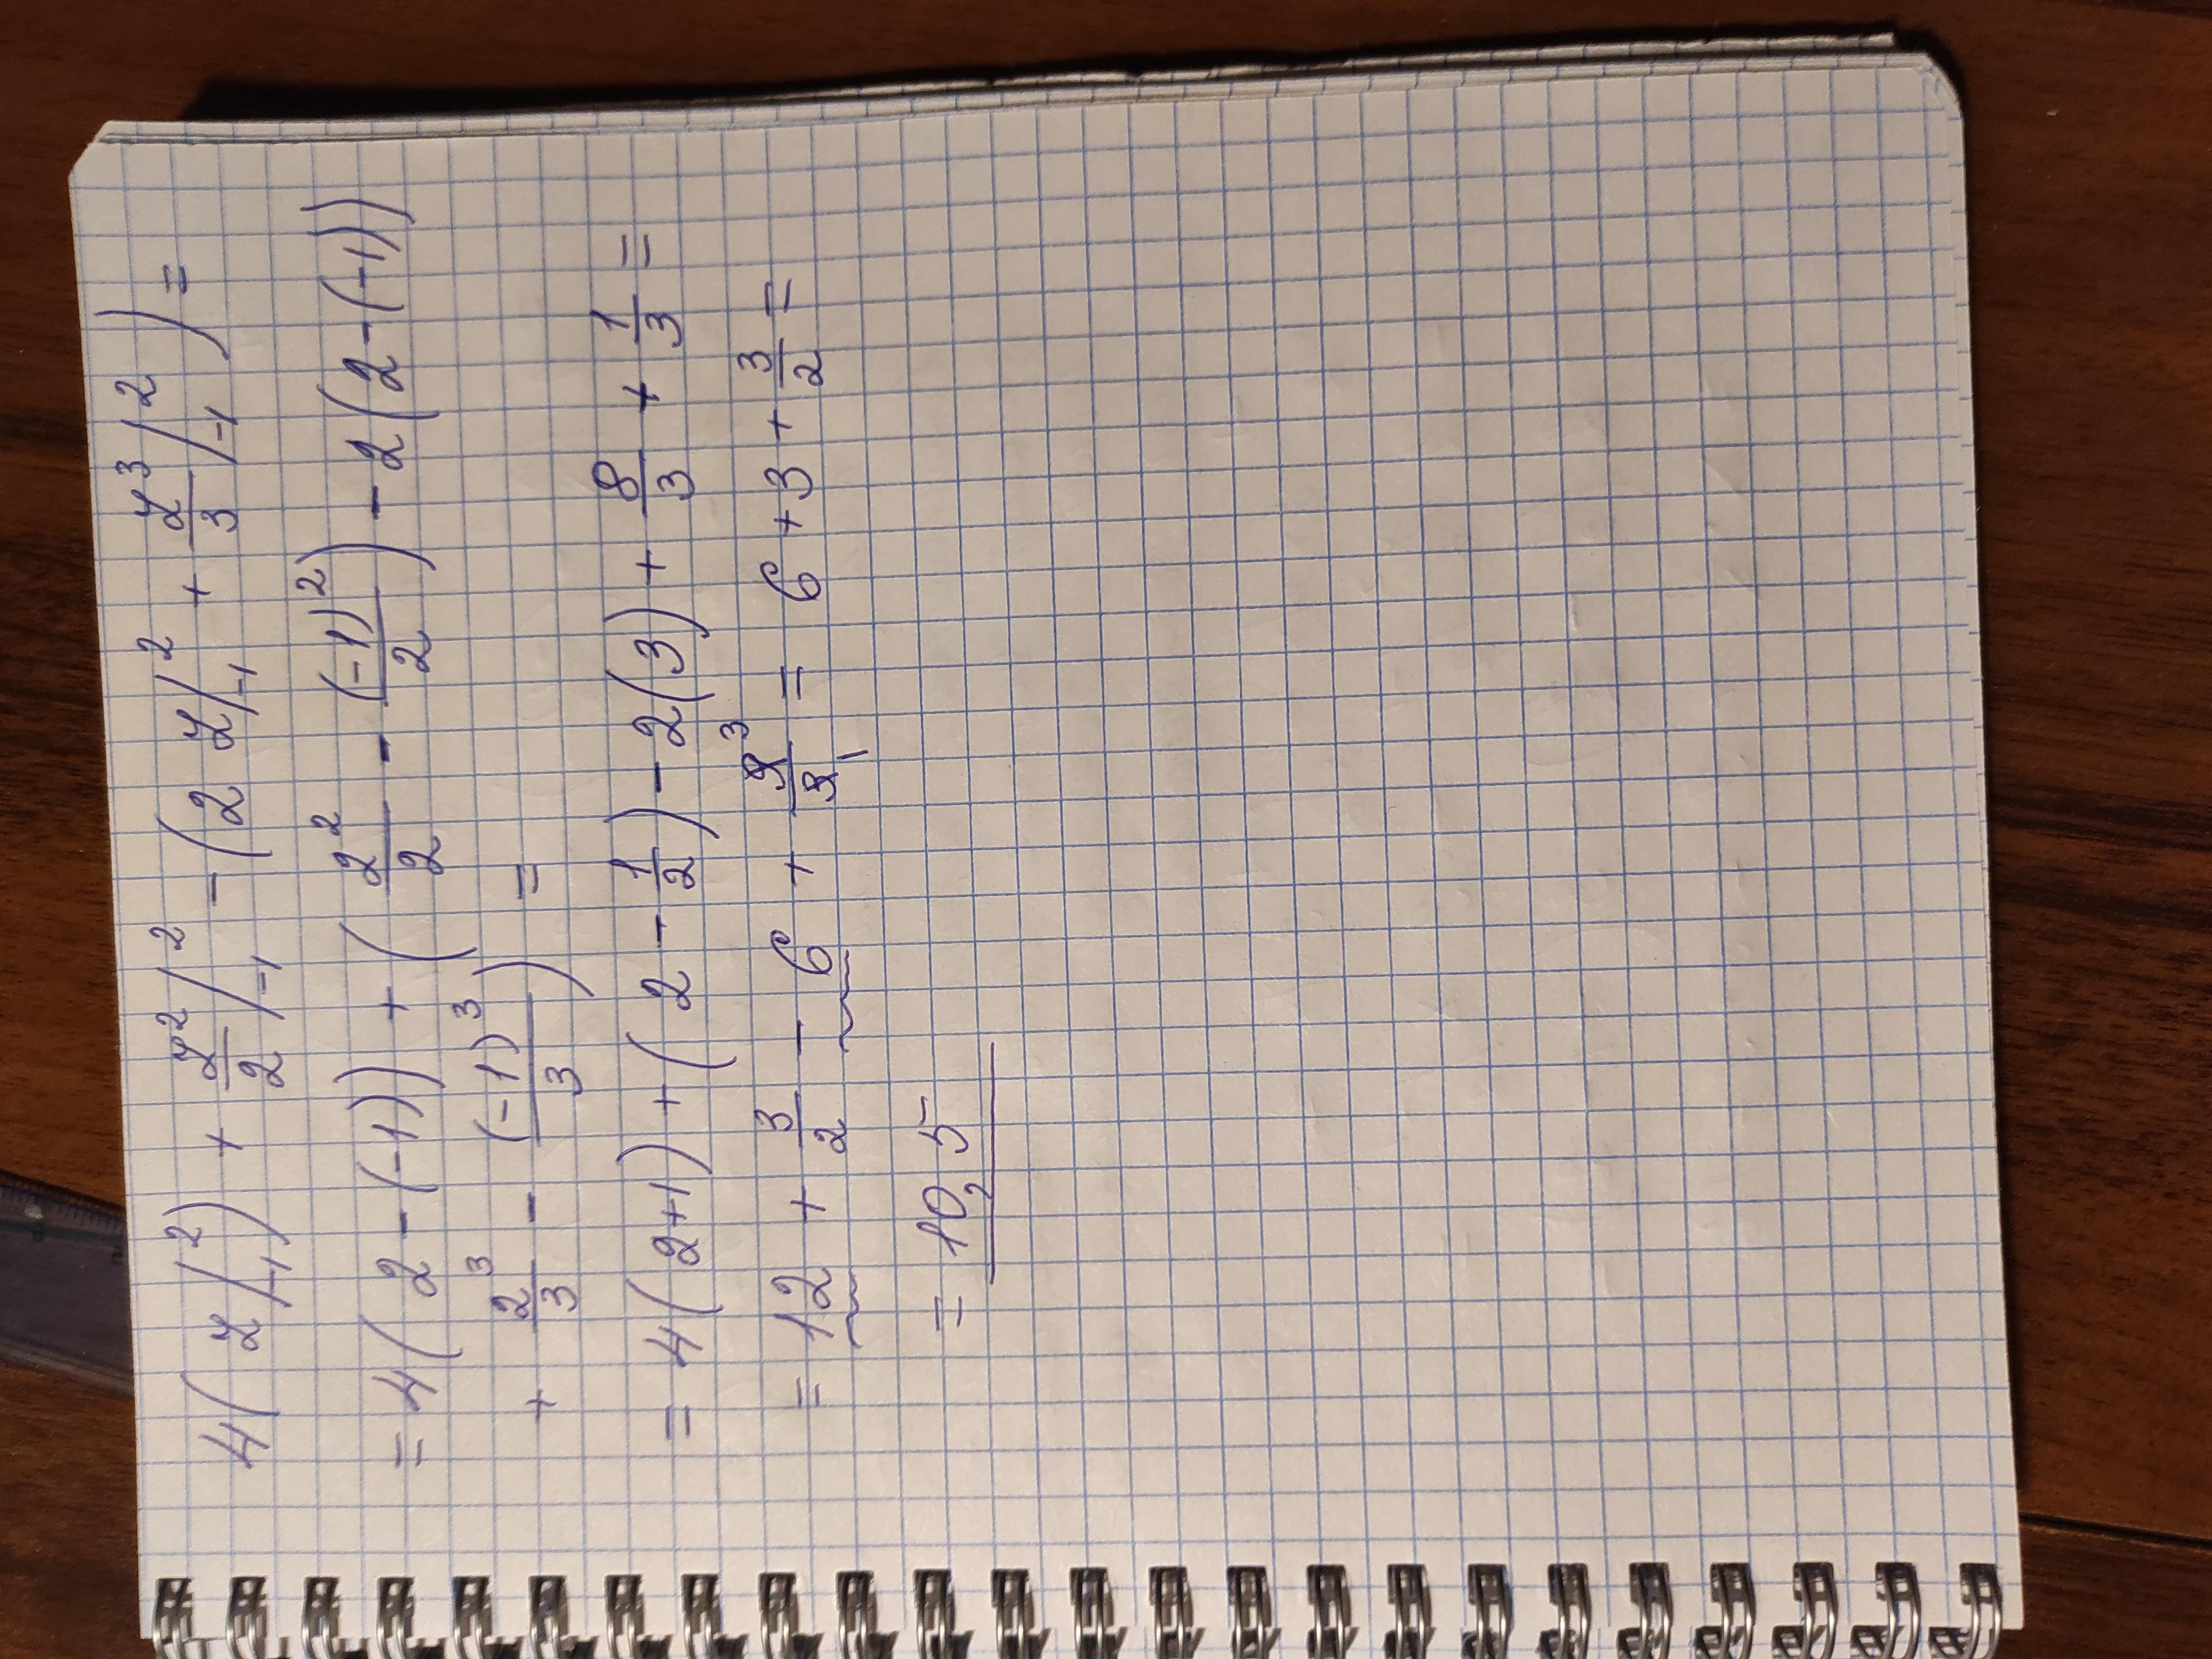 4(y|₋₁²) + y²/2|₋₁² - (2y|₋₁² + y³/3|₋₁²) =
= 4(2-(-1)) + (2²/2 - (-1)²/2) - 2(2-(-1))
+ 2³/3 - (-1)³/3) =
= 4(2+1) + (2 - 1/2) - 2(3) + 8/3 + 1/3 =
= 12 + 3/2 - 6 + 9³/3₁ = 6 + 3 + 3/2 =
= 10,5